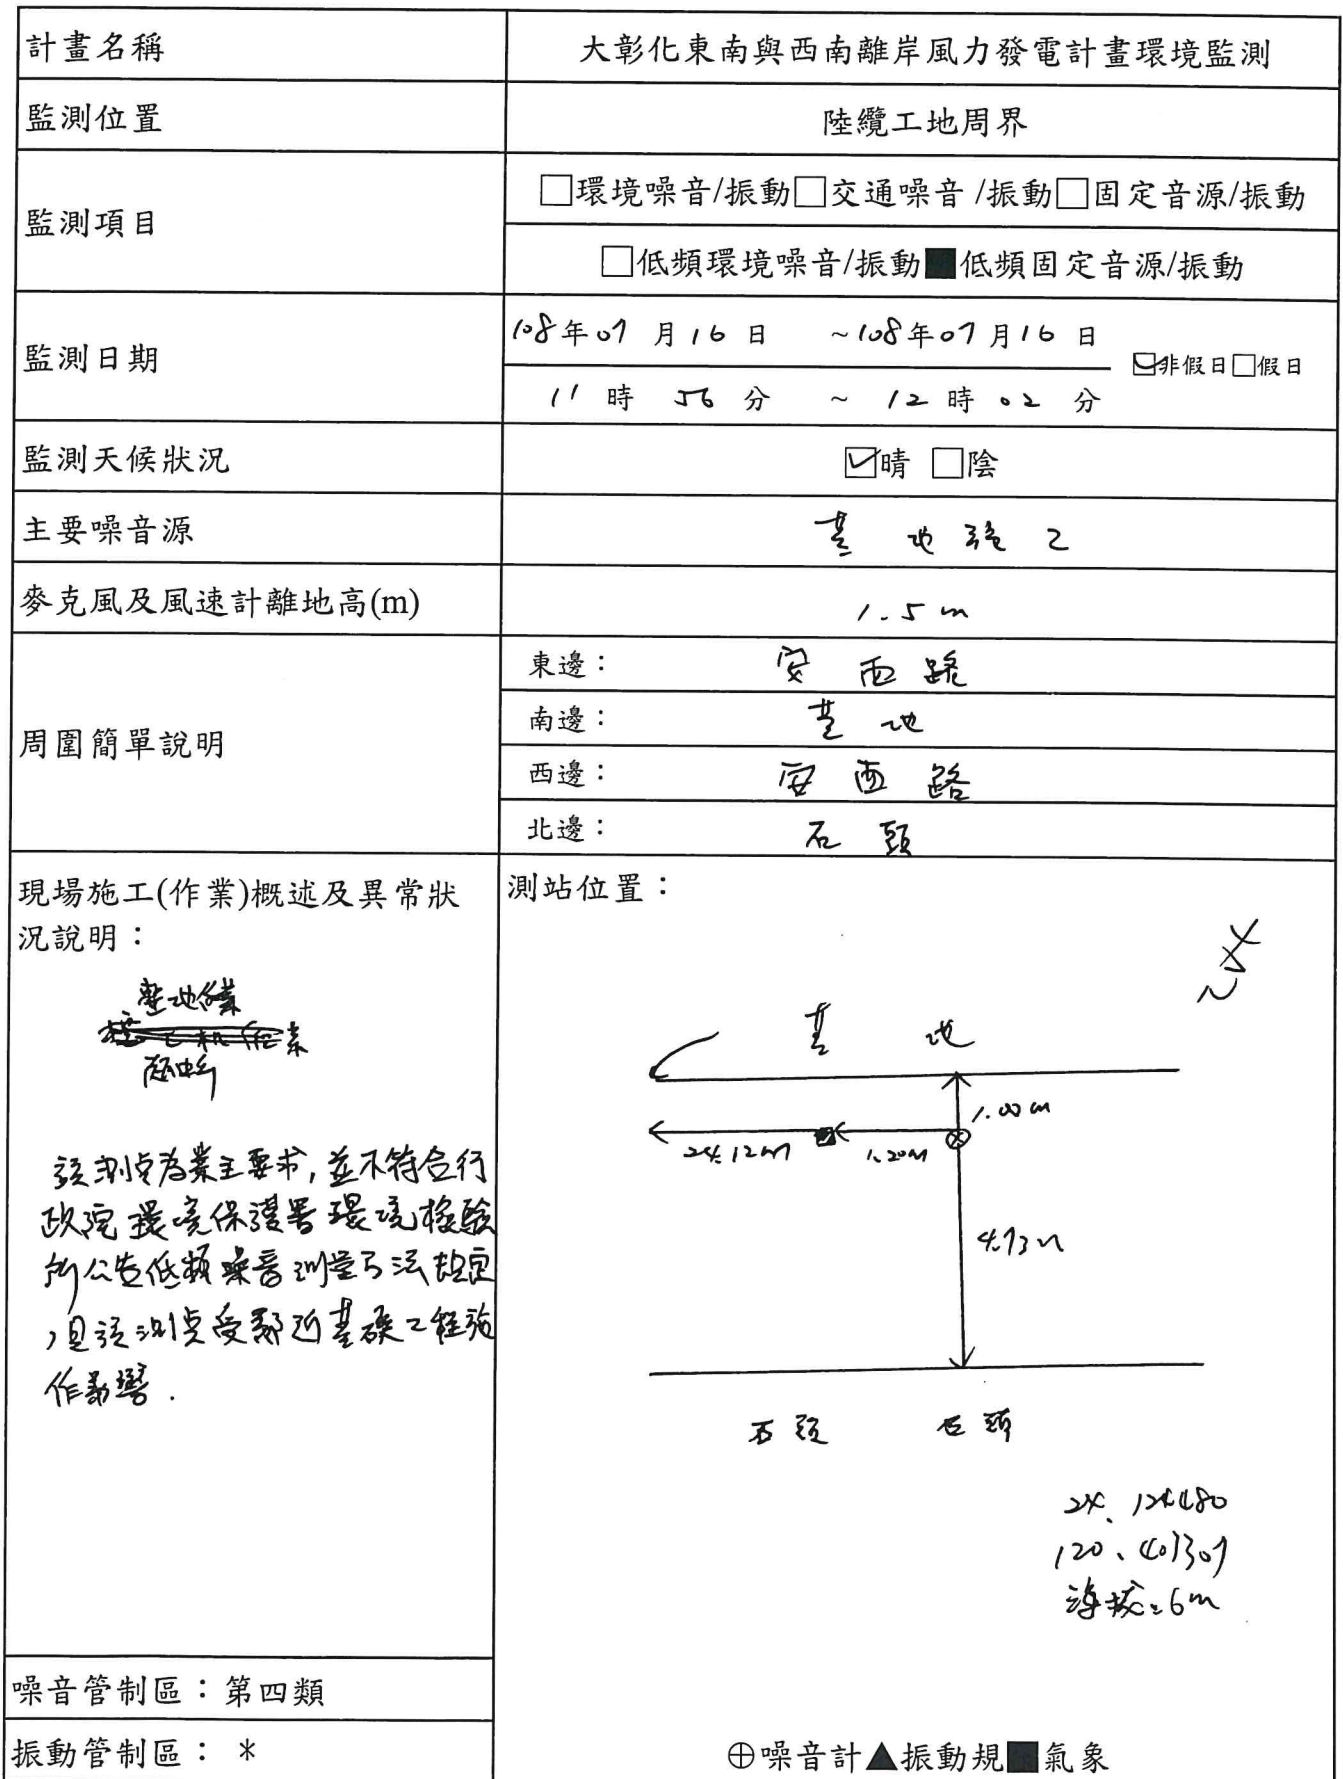 計畫名稱
大彰化東南與西南離岸風力發電計畫環境監測
監測位置
陸纜工地周界
監測項目
□環境噪音/振動□交通噪音 /振動□固定音源/振動
□低頻環境噪音/振動■低頻固定音源/振動
監測日期
108年07月16日 ~108年07月16日
11時56分 ~ 12時02分
☑非假日□假日
監測天候狀況
☑晴 □陰
主要噪音源
基地施工
麥克風及風速計離地高(m)
1.5m
周圍簡單說明
東邊： 安西路
南邊： 基地
西邊： 安西路
北邊： 石頭
現場施工(作業)概述及異常狀
況說明：
整地作業
該測點為業主要求,並不符合行
政院環境保護署環境檢驗
所公告低頻噪音測量方法規定
,且該測點受鄰近基礎工程施
作影響.
測站位置：
N
基地
1.00m
24.12m
1.20m
4.73m
石頭 石頭
24.124480
120.407307
海拔:6m
噪音管制區：第四類
振動管制區： *
⊕噪音計▲振動規■氣象